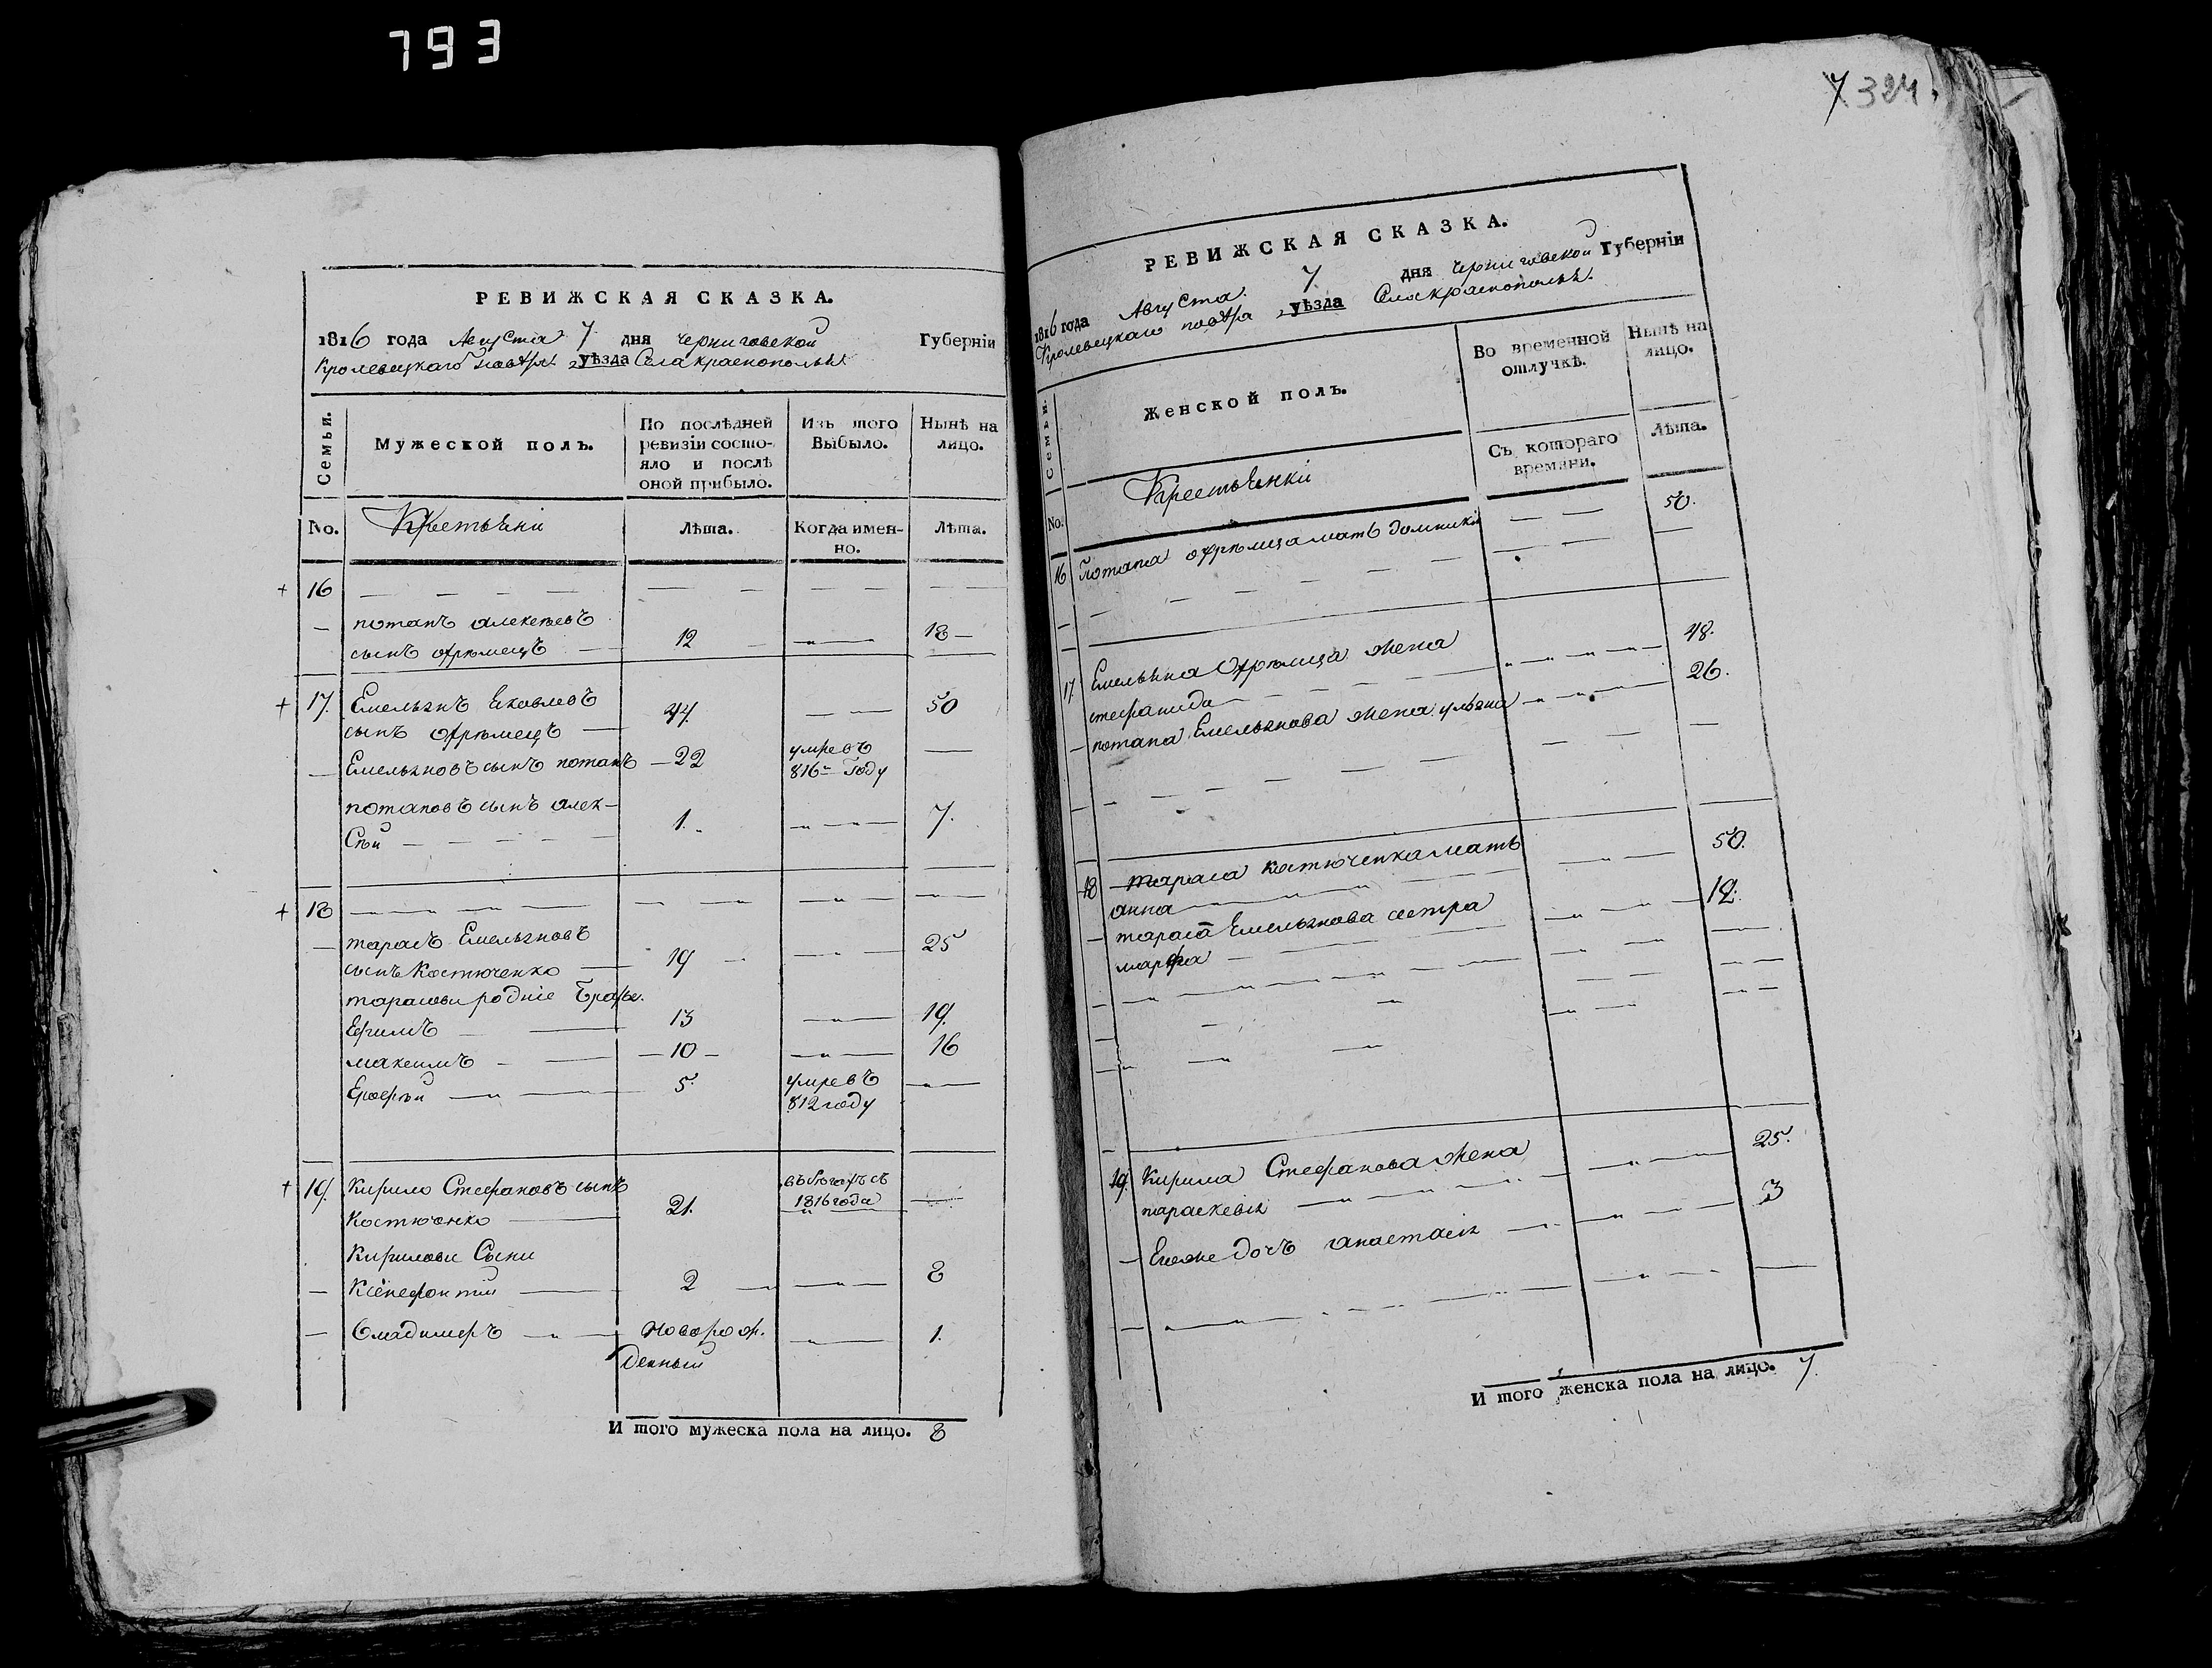 793
7 324.
РЕВИЖСКАЯ СКАЗКА.
1816 года Августа 7 дня Черниговской Губерніи
Кролевецкаго повѣта уѣзда Села краснополья
Семьи.
Мужеской полъ.
По послѣдней ревизіи состояло и послѣ оной прибыло.
Изъ того Выбыло.
Нынѣ на лицо.
No. Крестьяни Лѣта. Когда именно. Лѣта.
16
потапъ алексѣевъ
сынъ ефремецъ 12 18
17. Емельянъ Яковлевъ 44. 50
сынъ ефремецъ
Емельяновъ сынъ потапъ 22 умревъ
816 году
потаповъ сынъ алек-
сѣй 1. 7.
18
тарасъ Емельяновъ
сынъ Костюченко 19 25
тарасови родніе братья.
Ефимъ 13 19.
максимъ 10 16
Ерофѣй 5. умревъ
812 году
19. Кирило Стефановъ сынъ въ бѣгахъ съ
Костюченко 21. 1816 года
Кирилови Сыни
Ксенефонтий 2 8
Владимеръ Новорож. 1.
денный
И того мужеска пола на лицо. 8
РЕВИЖСКАЯ СКАЗКА.
1816 года Августа 7 дня Черниговской Губерніи
Кролевецкаго повѣта уѣзда Села краснополья.
Семьи.
Женской полъ.
Во временной отлучкѣ.
Нынѣ на лицо.
Съ котораго времяни.
Лѣта.
No. Крестьянки
16 Потапа ефремца мать домникия 50.
17. Емельяна Ефремца жена
стефанида 48.
потапа Емельянова жена ульяна 26.
18 тараса костюченка мать
анна 50.
тараса Емельянова сестра
марфа 12.
19. Кирила Стефанова жена
параскевия 25.
Ея же дочъ анастасия 3
И того женска пола на лицо. 7.